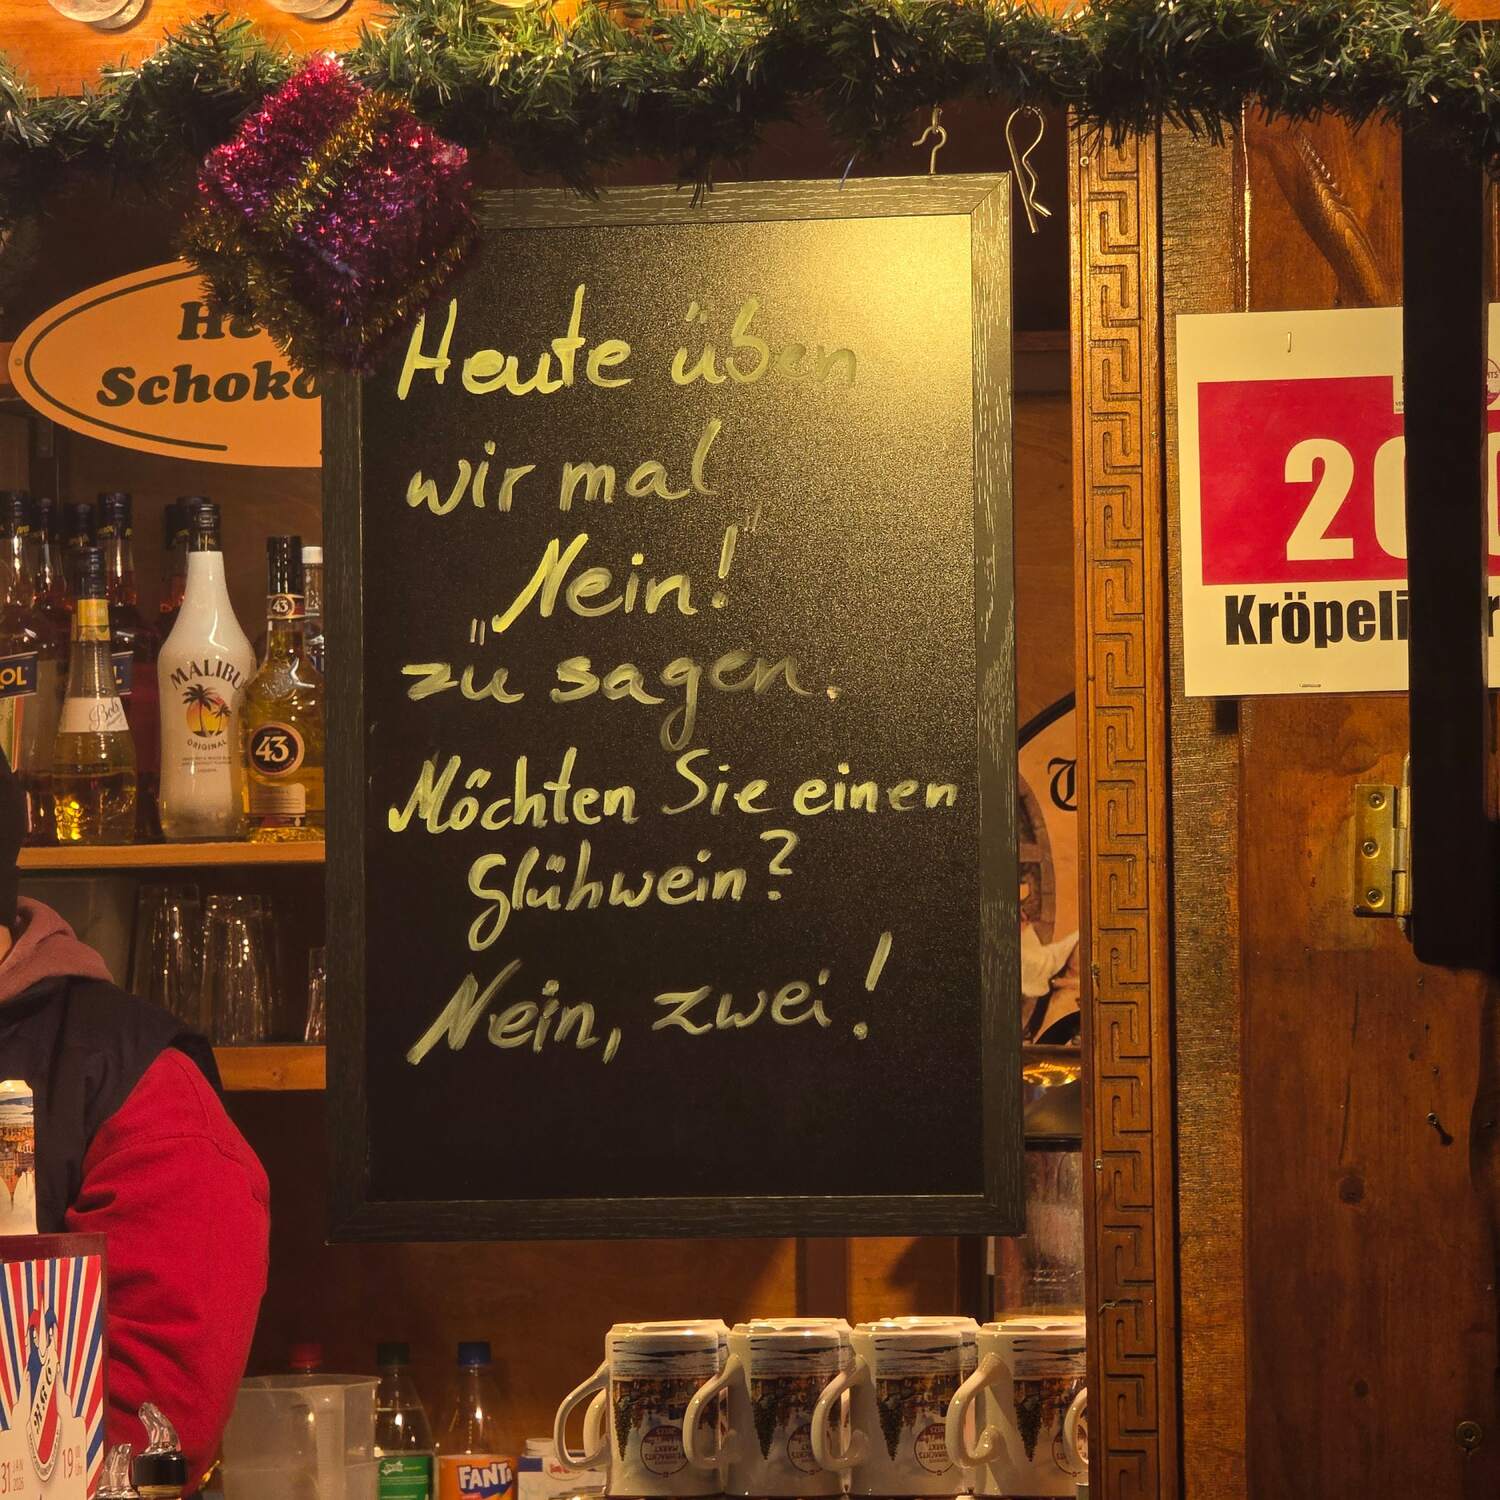 Heute üben
wir mal
„Nein!"
zu sagen.
Möchten Sie einen
Glühwein?
Nein, zwei!
MALIBU
ORIGINAL
43
43
FANTA
31 JAN 2026
19 00 Uhr